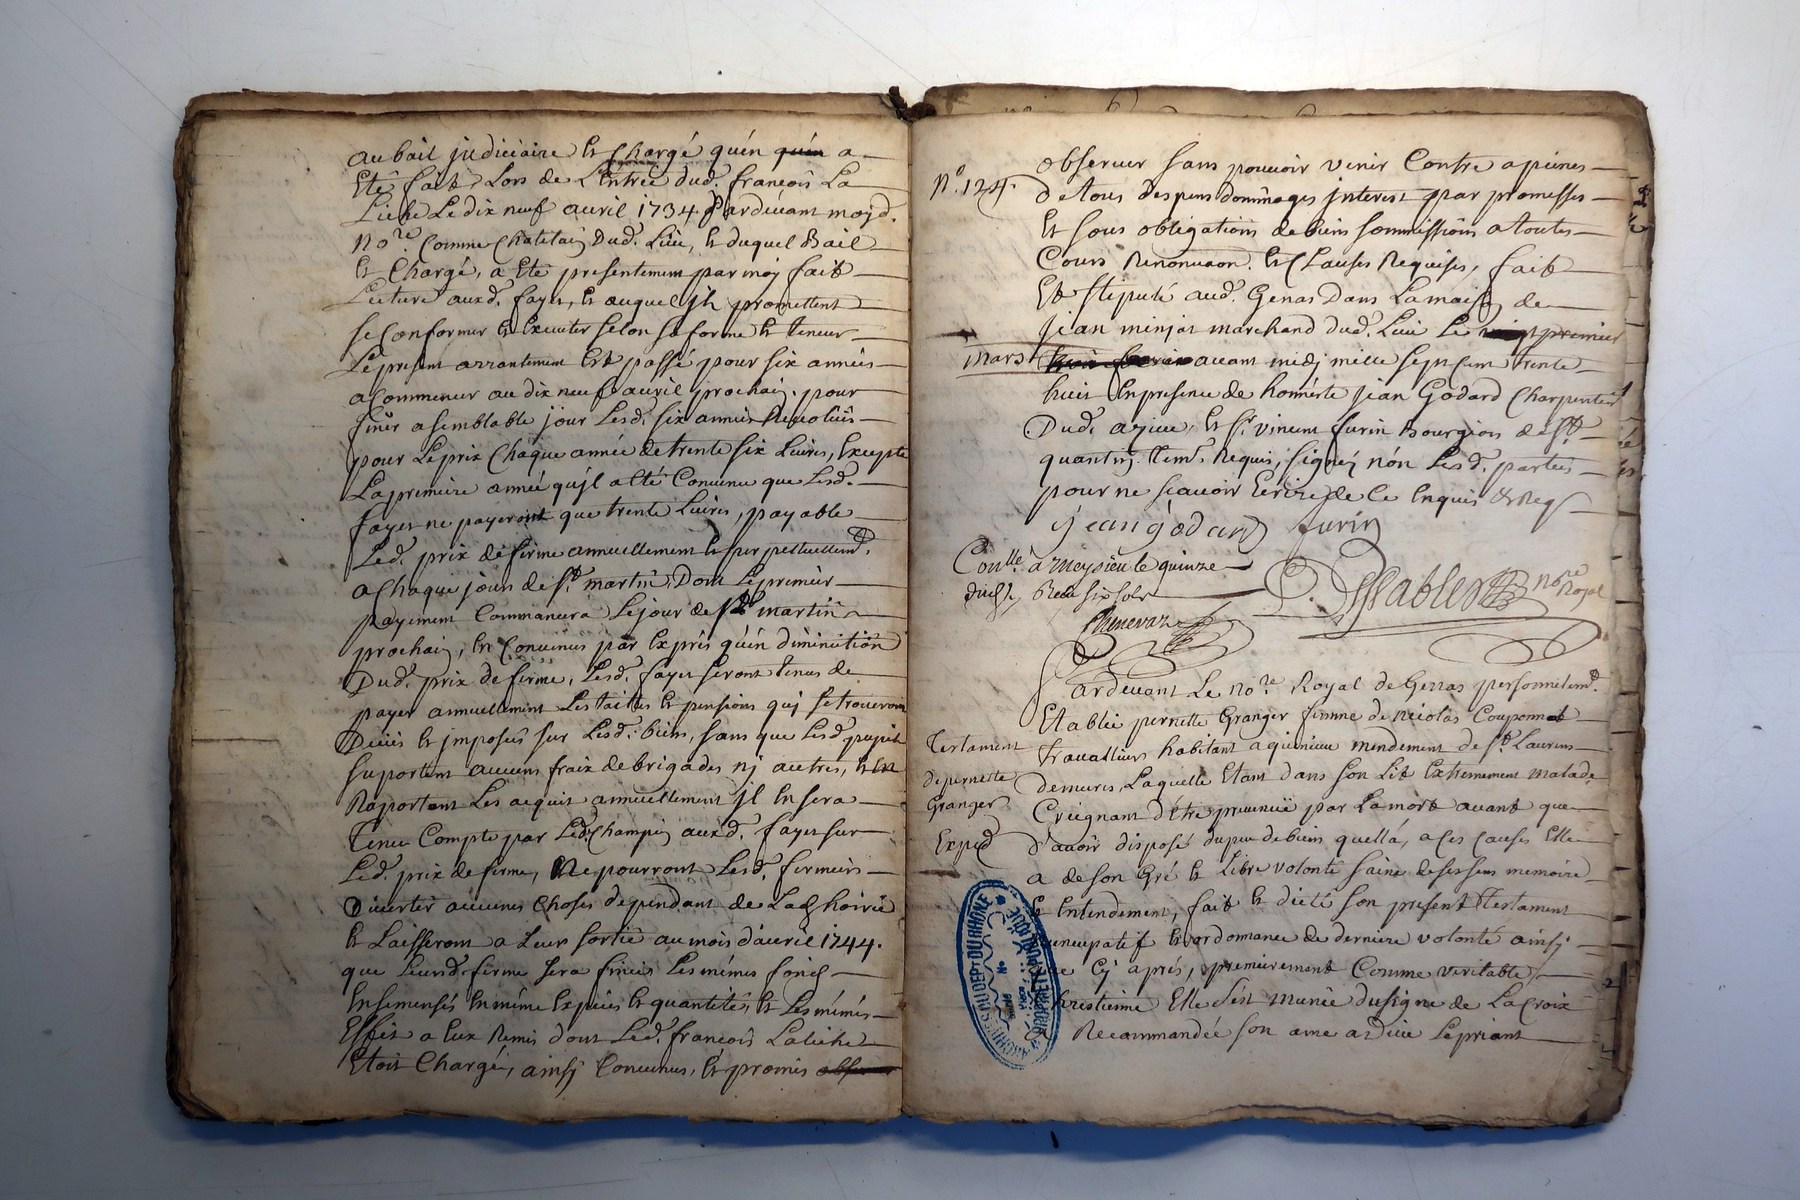 au bail judiciaire et chargé quén quén a
Eté fait Lors de L'Entrée dud. francois La
Liche Le dix neuf auril 1734. Pardeuant moyd.
No.re Comme Chatelain Dud. Lieu, et duquel Bail
et Chargé, a Eté presentement par moy fait
Lecture auxd. fayes, et auquel jls promettent
se Conformer et Executer selon sa forme et teneur
Le present arrantement Est passé pour six années
a Commencer au dix neuf auril prochain. pour
finir a semblable jour Lesd. six années Revolües
pour Le prix Chaque année de trente six Liures, Excepté
La premiere année qu'jl a Eté Conuenu que Lesd.
fayes ne payeront que trente Liures, payable
Led. prix de ferme annuellement et perpetuellemt.
a Chaque jours de St. martin, Dont Le premier
payement Commancera Le jour de St. martin
prochain, et Conuenus par Exprès quén diminution
Dud. prix de ferme, Lesd. fayes seront tenus de
payer annuellement Les tailles et pensions quj se trouueront
Deües et jmposeés sur Lesd. biens, sans que Lesd.
suportent aucuns fraix de brigades nj autres, et En
Raportant Les acquis annuellement jl En sera
tenu Compte par Led. Champin auxd. fayes sur
Led. prix de ferme, Ne pourront Lesd. fermiers
Diuertir aucunes Choses dependant de Lad. hoirie
et Laisseront a Leur sortie au mois d'auril 1744.
que Leurd. ferme sera finie Les mémes fonds
Ensemensés En méme Expéces et quantités, et Les mémés
Effets a Eux Remis dont Led. francois Laliche
Etoit Chargé, ainsj Conuenus, et promis
N.o 124.
obseruer sans pouuoir venir Contre a peines
de tous Despens dommages jnterest par promesses
Et sous obligations de biens sommissions a toutes
Cours Renonuaon. et Clauses Requises, fait
Et stipulé aud. Genas Dans La maison de
jean minjat marchand dud. Lieu Le premier
mars auant midj mille sept cent trente
huit En presence de honnéste jean Godard Charpentier
Dud. et Sr. vincent furin Bourgeois de St.
quantin. tems. Requis, signés nón Lesd. parties
pour ne scauoir Ecrire de Ce Enquis & Reqs
jean godard furin
Conlle. à Meysieu le quinze
six sols
No.re Royal
Pardeuant Le No.re Royal de Genas personnelemt.
Etablie pernette Granger femme de nicolas Couponnat
Testament
de pernette
Granger
Exped
trauailleur habitant a mendement de St. Laurens
demures, Laquelle Etant dans son Lit Extremement malade
Creignant d'Etre preuenuë par La mort auant que
D'auoir disposé du peu de bien quellá, a Ces Causes Elle
a de son Gré et Libre volonté saine de ses sens memoire
et Entendement, fait et dicté son present testament
nuncupatif et ordonance de derniere volonté ainsj
que Cj aprés, premierement Comme veritable
Chrestienne Elle s'est munie du signe de La Croix
Recommandée son ame a Dieu Le priant
ARCHIVES DU DEPT DU RHONE